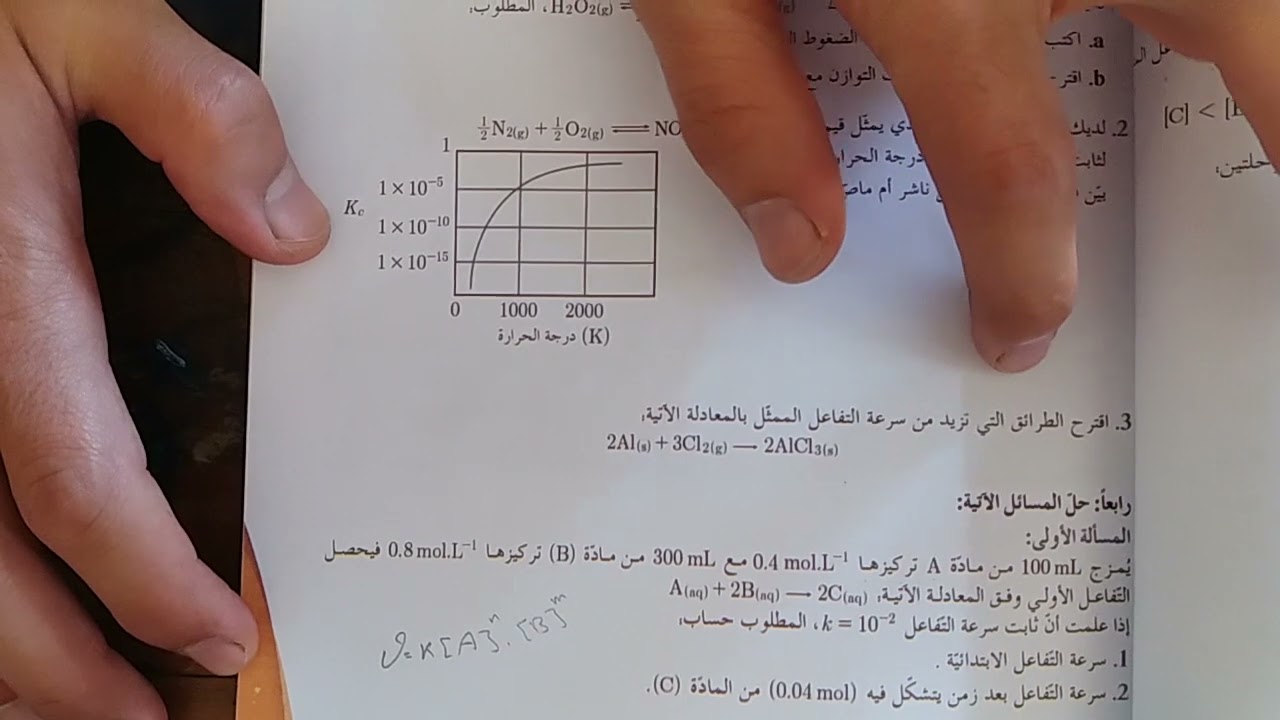 H₂O₂(g) ⇌ ، المطلوب:
a. اكتب الضغوط
b. التوازن مع
[C] <
2. لديك يمثّل
½N₂(g) + ½O₂(g) ⇌ NO
درجة
حلتين:
بيّن ناشر أم
1
1 × 10⁻⁵
K꜀
1 × 10⁻¹⁰
1 × 10⁻¹⁵
0 1000 2000
درجة الحرارة (K)
3. اقترح الطرائق التي تزيد من سرعة التفاعل الممثّل بالمعادلة الآتية:
2Al(s) + 3Cl₂(g) ⟶ 2AlCl₃(s)
رابعاً: حلّ المسائل الآتية:
المسألة الأولى:
يُمزج 100 mL من مادّة A تركيزها 0.4 mol.L⁻¹ مع 300 mL من مادّة (B) تركيزها 0.8 mol.L⁻¹ فيحصل
التفاعل الأولي وفق المعادلة الآتية: A(aq) + 2B(aq) ⟶ 2C(aq)
إذا علمت أنّ ثابت سرعة التّفاعل k = 10⁻²، المطلوب حساب:
1. سرعة التّفاعل الابتدائيّة .
2. سرعة التّفاعل بعد زمن يتشكّل فيه (0.04 mol) من المادّة (C).
𝜗 = K[A]ⁿ . [B]ᵐ